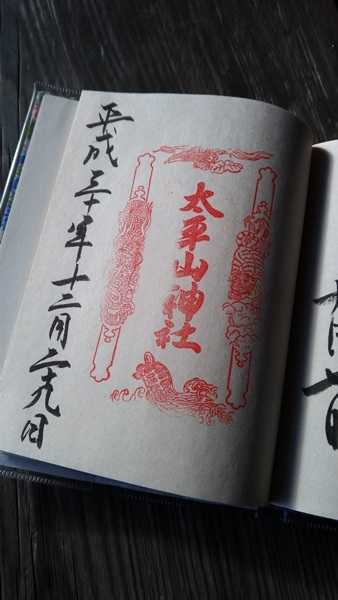 太平山神社
平成三十年十二月二十九日